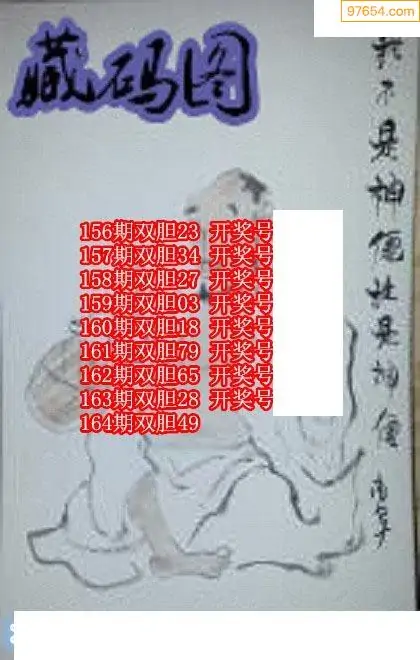 97654.com
藏码图
不是神
是神
156期双胆23 开奖号
157期双胆34 开奖号
158期双胆27 开奖号
159期双胆03 开奖号
160期双胆18 开奖号
161期双胆79 开奖号
162期双胆65 开奖号
163期双胆28 开奖号
164期双胆49